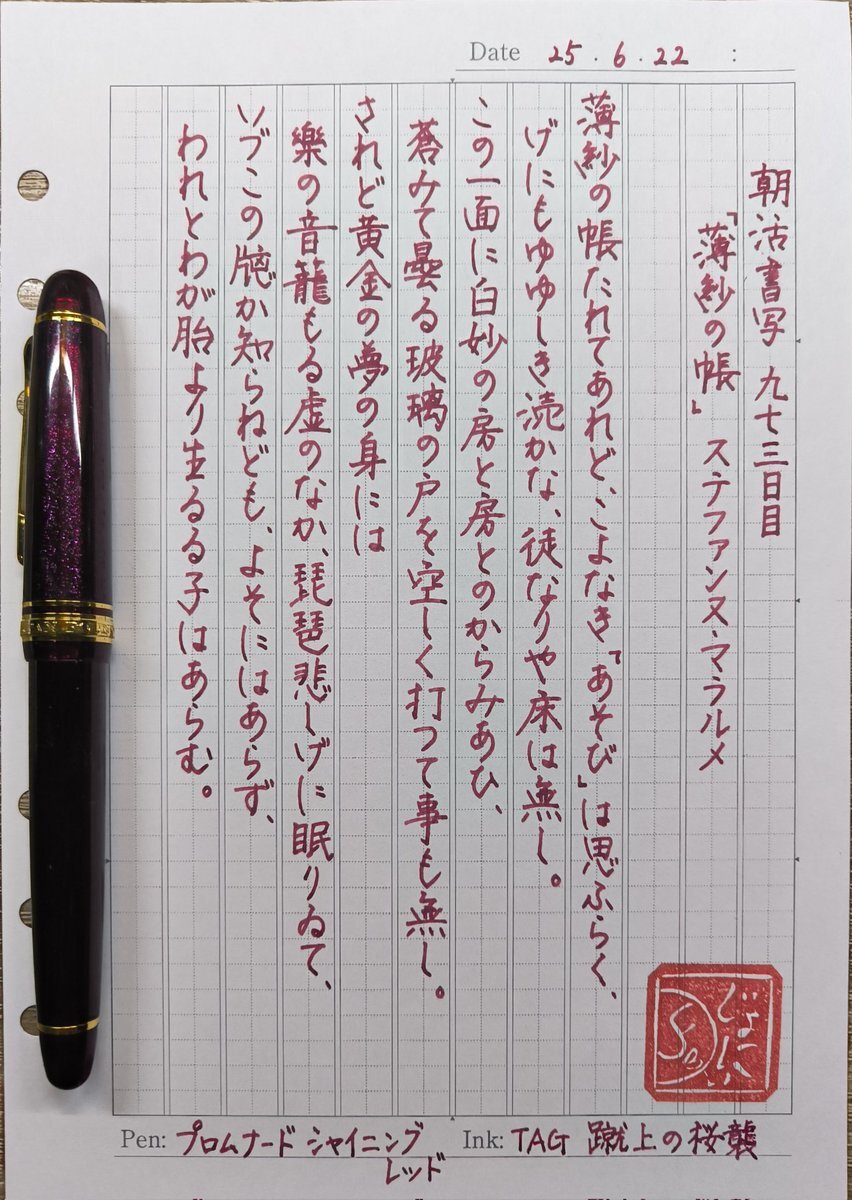 Date 25.6.22 :
朝活書写 九七三日目
「薄紗の帳」 ステファンヌ・マラルメ
薄紗の帳たれてあれど、こよなき「あそび」は思ふらく、
げにもゆゆしき涜かな、徒なりや床は無し。
この一面に白妙の房と房とのからみあひ、
蒼みて曇る玻璃の戸を空しく打つて事も無し。
されど黄金の夢の身には
樂の音籠もる虚のなか、琵琶悲しげに眠りゐて、
いづこの牕か知らねども、よそにはあらず、
われとわが胎より生るる子はあらむ。
Pen: プロムナード シャイニング
レッド
Ink: TAG 蹴上の桜襲